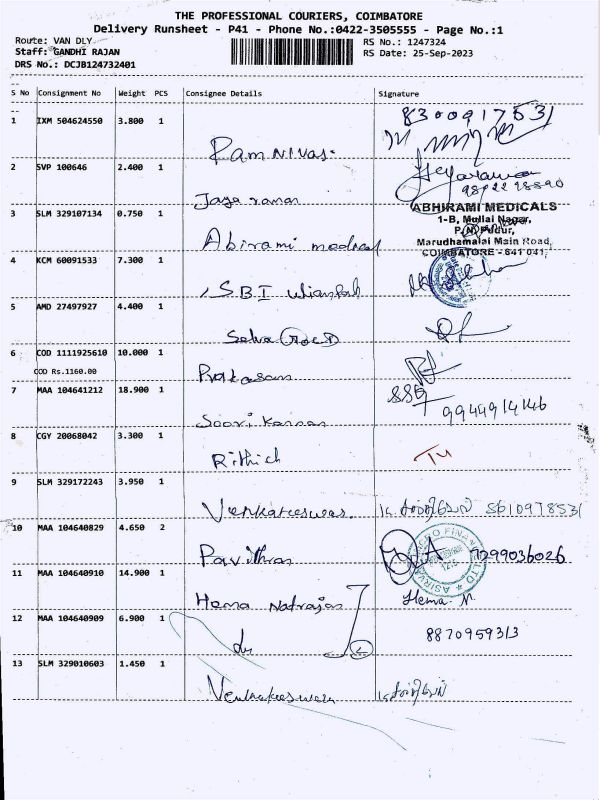 THE PROFESSIONAL COURIERS, COIMBATORE
Delivery Runsheet - P41 - Phone No.:0422-3505555 - Page No.:1
Route: VAN DLY
RS No.: 1247324
Staff: GANDHI RAJAN
RS Date: 25-Sep-2023
DRS No.: DCJB124732401
S No Consignment No Weight PCS Consignee Details Signature
1 IXM 504624550 3.800 1
8300917531
Ramnivas.
2 SVP 100646 2.400 1
Jeyaraman
Jaya raman
ABHIRAMI MEDICALS
3 SLM 329107134 0.750 1
1-B, Mullai Nagar,
P.N. Pudur,
Abirami medical
Marudhamalai Main Road,
COIMBATORE - 641 041.
4 KCM 60091533 7.300 1
SBI
5 AMD 27497927 4.400 1
Selva
6 COD 1111925610 10.000 1
COD Rs.1160.00
Prakasam
7 MAA 104641212 18.900 1
9944914146
Soori Kannan
8 CGY 20068042 3.300 1
Rithick
9 SLM 329172243 3.950 1
Venkateeswaran.
10 MAA 104640829 4.650 2
Pavithran
9299036026
11 MAA 104640910 14.900 1
Hema Natrajan
Hema N.
12 MAA 104640909 6.900 1
8870959313
13 SLM 329010603 1.450 1
Venkateeswaran